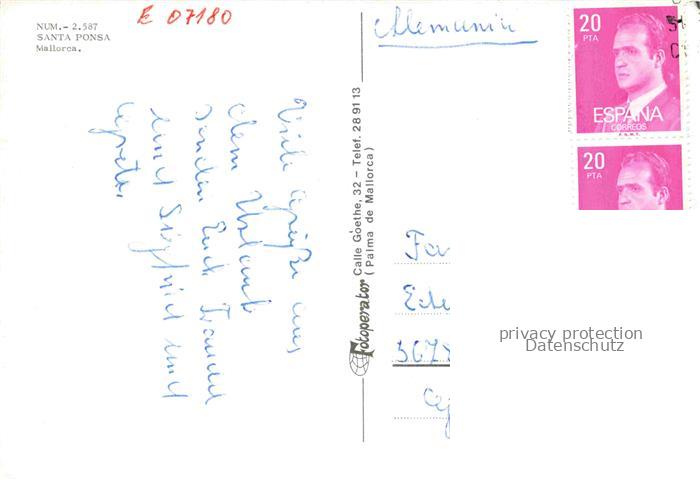 NUM.- 2.587
SANTA PONSA
Mallorca.
E 07180
Viele Grüße aus
dem Urlaub
senden Euch Traudel
und Siegfried und
Fotoperator Calle Góethe, 32 - Telef. 28 91 13
(Palma de Mallorca)
Alemania
20
PTA
ESPAÑA
CORREOS
F.N.M.T.
20
PTA
privacy protection
Datenschutz